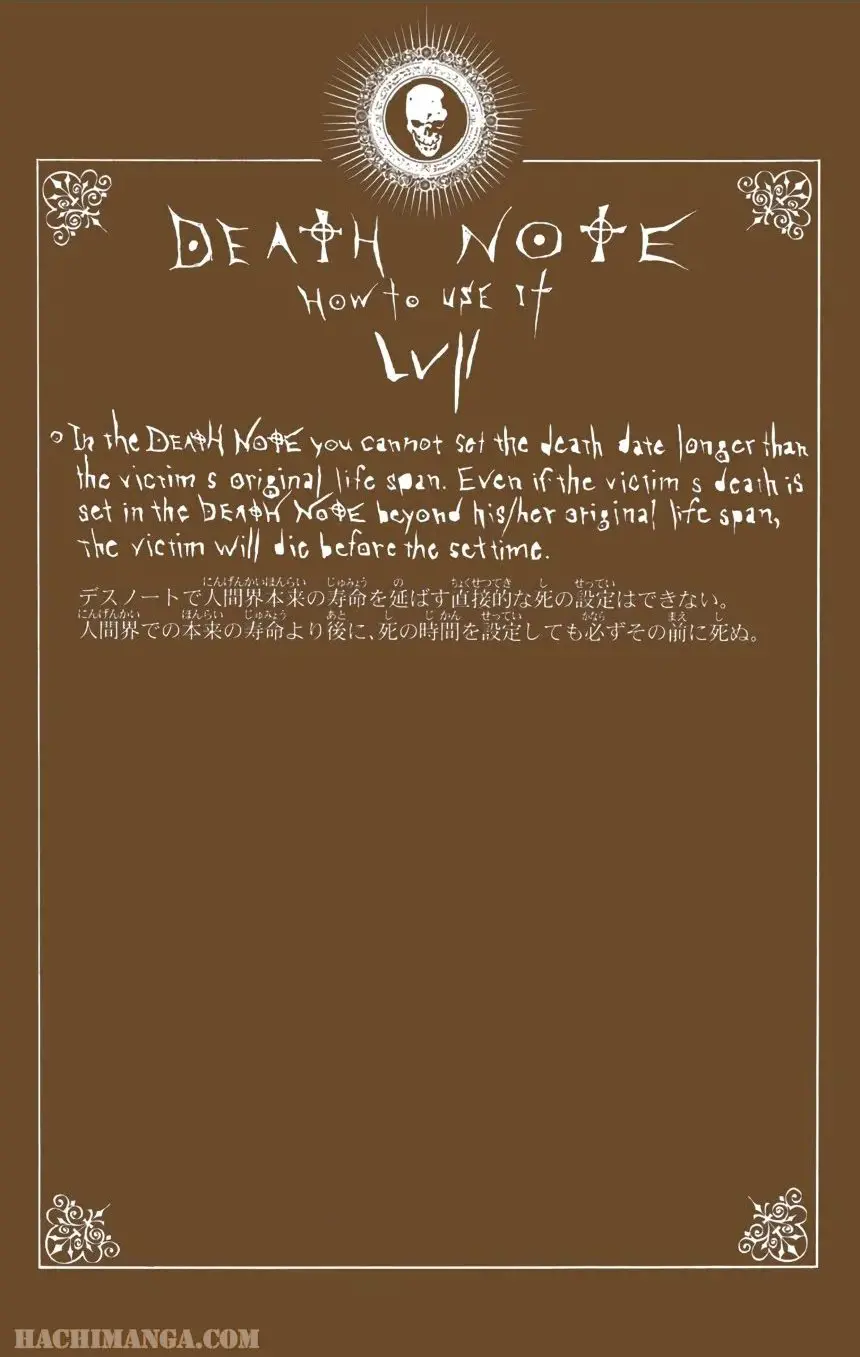 DEATH NOTE
HOW TO USE IT
LVII
In the DEATH NOTE you cannot set the death date longer than
the victim s original life span. Even if the victim s death is
set in the DEATH NOTE beyond his/her original life span,
the victim will die before the set time.
にんげんかいほんらい じゅみょう の ちょくせつてき し せってい
デスノートで人間界本来の寿命を延ばす直接的な死の設定はできない。
にんげんかい ほんらい じゅみょう あと し じかん せってい かなら まえ し
人間界での本来の寿命より後に、死の時間を設定しても必ずその前に死ぬ。
HACHIMANGA.COM